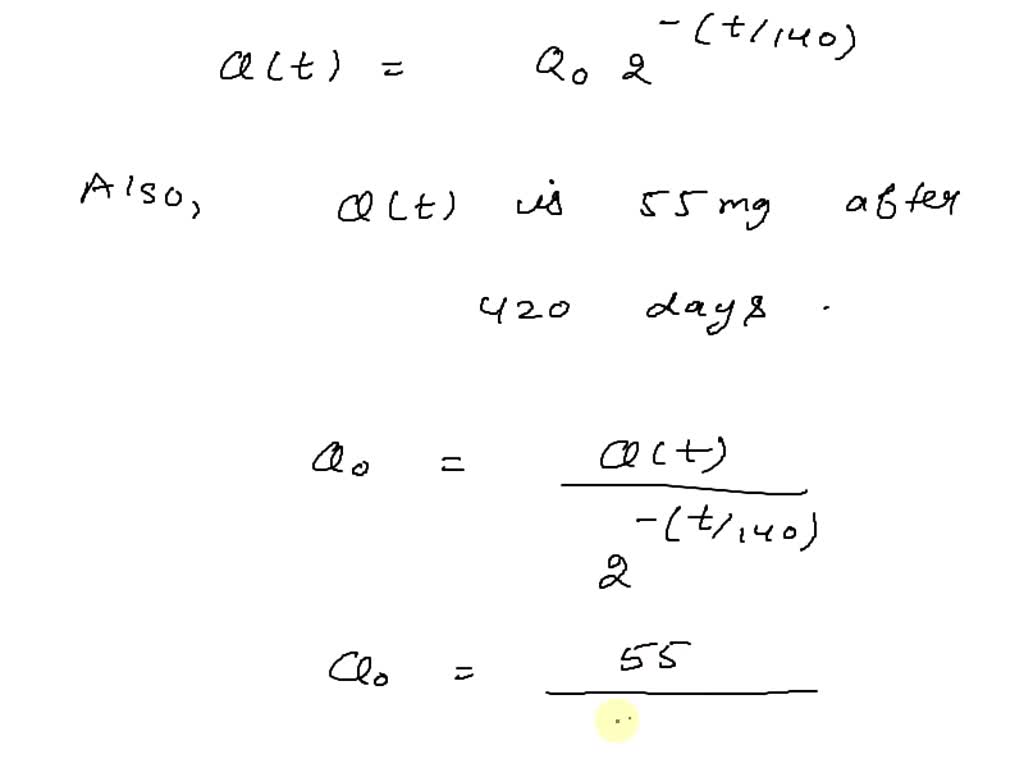 Q(t) = Q₀ 2^-(t/140)
Also, Q(t) is 55 mg after
420 days.
Q₀ = Q(t) / 2^-(t/140)
Q₀ = 55 /